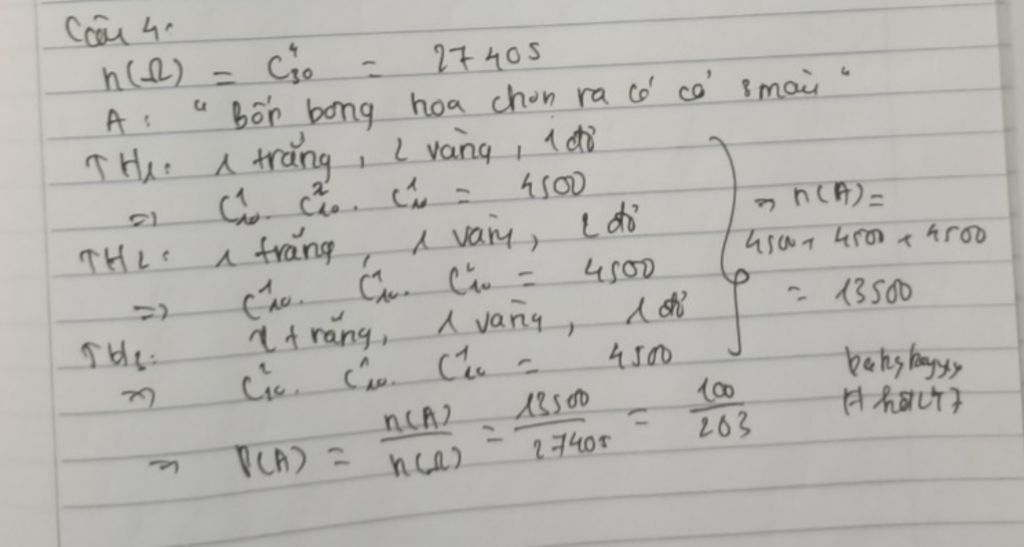 Câu 4:
n(Ω) = C⁴₃₀ = 27405
A: "Bốn bong hoa chon ra có có 3 màu"
TH₁: 1 trắng, 2 vàng, 1 đỏ
=> C¹₁₀. C²₁₀. C¹₁₀ = 4500
TH₂: 1 trắng, 1 vàng, 2 đỏ
=> C¹₁₀. C¹₁₀. C²₁₀ = 4500
TH₃: 2 trắng, 1 vàng, 1 đỏ
=> C²₁₀. C¹₁₀. C¹₁₀ = 4500
=> n(A) =
4500 + 4500 + 4500
= 13500
=> P(A) = n(A)/n(Ω) = 13500/27405 = 100/203